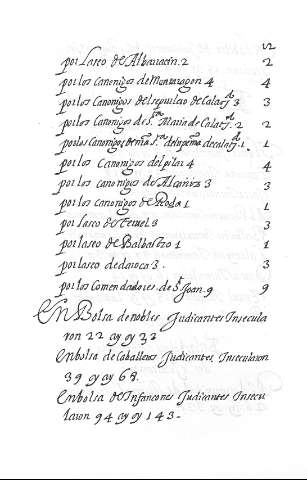 por laseo de Albarracin. 2 2
por los Canonigos de Montaragon 4 4
por los Canonigos del sepulcro de Calatd. 3 3
por los Canonigos de Sta. Maria de Calatd. 2 2
por los Canonigos de nra. Sa. de la pena de calatd. 1. 1
por los Canonigos del pilar 4 4
por los canonigos de Alcañiz 3 3
por los canonigos de Roda 1 1
por laseo de Teruel 3 3
por laseo de Balbastro 1 1
por laseo de daroca 3. 3
por los Comendadores de St. Joan. 9 9
En Bolsa de nobles Judicantes Insecula
ron 22 ay oy 32
En bolsa de Caballeros Judicantes, Insecularon
39 oy ay 68.
En bolsa de Infançones Judicantes Insecu
laron 94 ay oy 143.